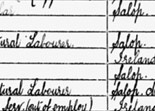 Salop.
tural Labourer Salop.
Ireland
Salop.
tural Labourer Salop
Serv. (out of employ) Ireland